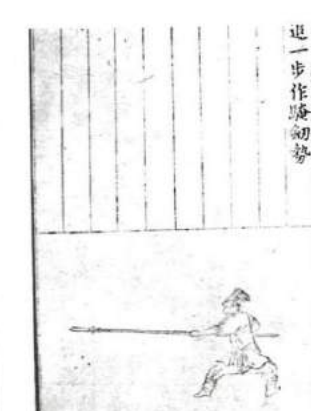 進一步作騎劒勢